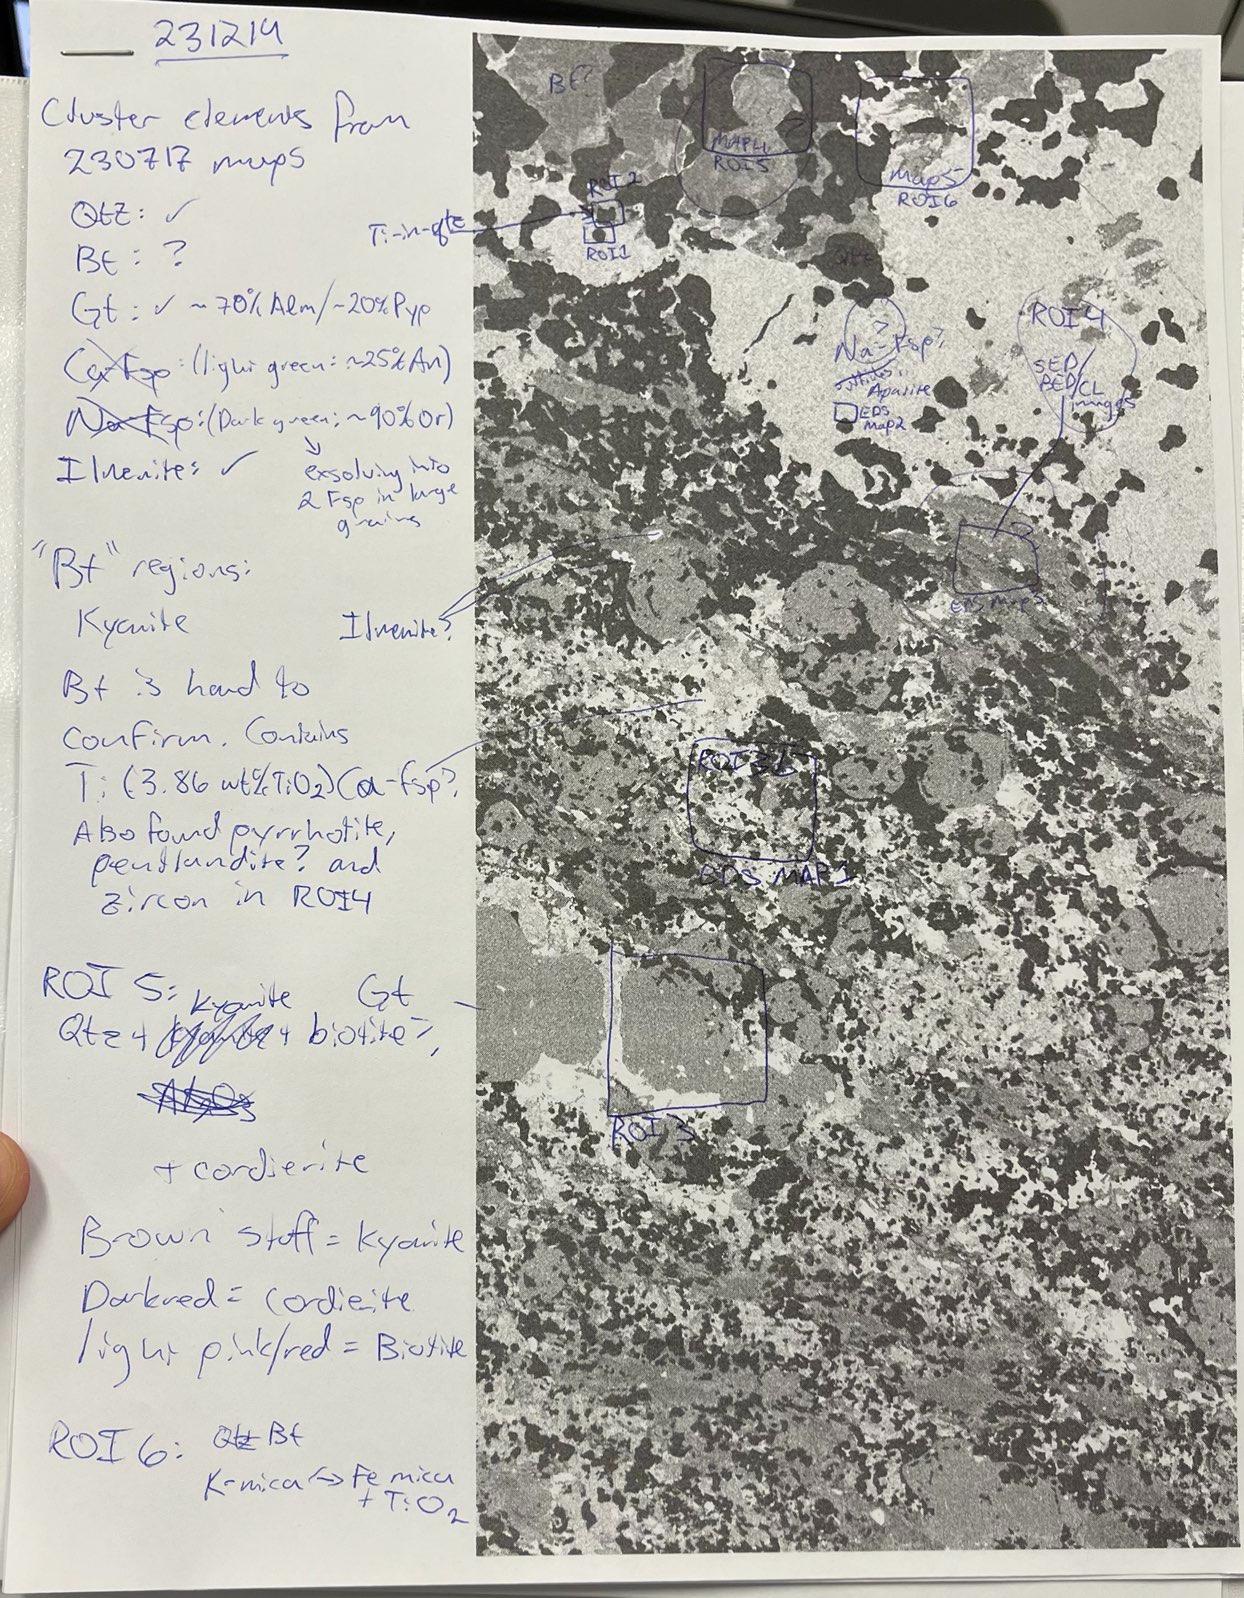 231214
Cluster elements from
230717 maps
Qtz: ✓
Bt: ?
Gt: ✓ ~70% Alm/~20% Pyp
Ca-Fsp: (light green: ~25% An)
Na-Fsp: (Dark green: ~90% Or)
Ilmenite: ✓
exsolving into
2 Fsp in large
grains
"Bt" regions:
Kyanite
Ilmenite?
Bt is hard to
confirm. Contains
Ti (3.86 wt% TiO2)
Ca-fsp?
Also found pyrrhotite,
pentlandite? and
zircon in ROI4
ROI 5: Kyanite
Qtz + + biotite?,
Gt
+ cordierite
Brown stuff = Kyanite
Dark red = cordierite
light pink/red = Biotite
ROI 6: Qtz Bt
K-mica → Fe mica
+ TiO2
Bt?
MAP4
ROI5
Map5
ROI6
ROI2
Ti-in-qtz
ROI1
Qtz
?
Na-Fsp?
Apatite
EDS
Map2
ROI4
SED/
BED/CL
images
EDS Map3
ROI3b
EDS MAP1
ROI 3